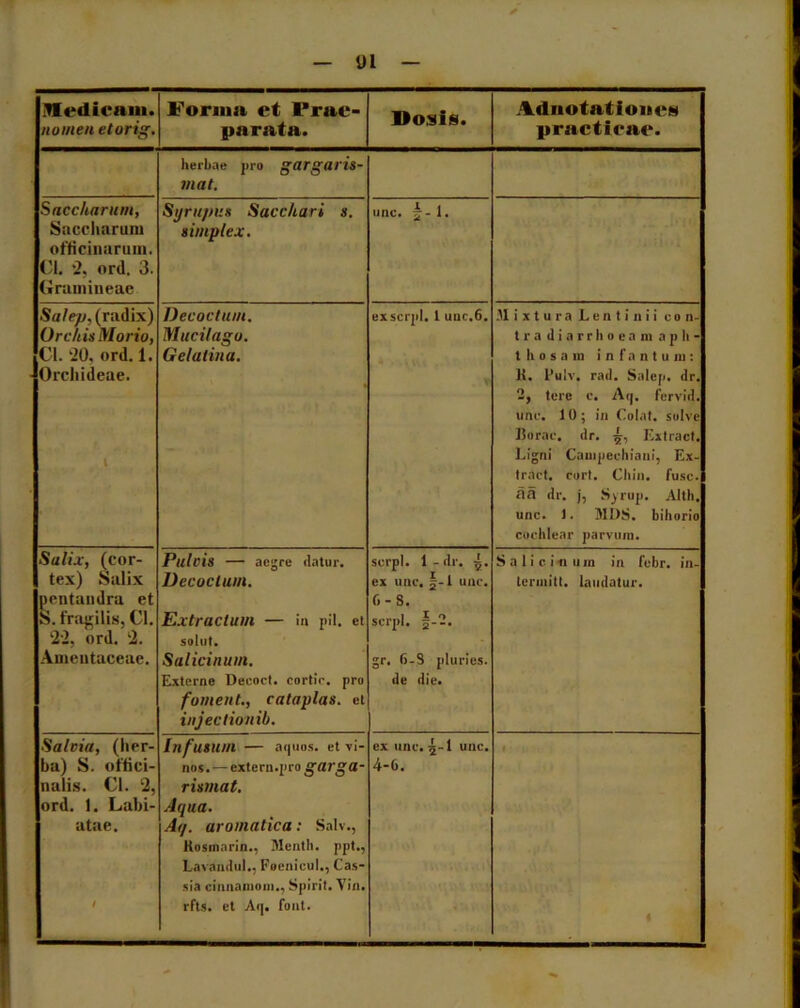 — 91 —
Medicam.
nomen et orig.
Forma et Prae-
parata.
Dosis.
Adnotationes
practicae.
herbae pro gargaris-
mat.
Saccharum,
Saccharum
officinarum.
Cl. 2, ord. 3.
Gramineae
Syrupus Sacchari s.
simplex.
unc. ½-1.
Salep, (radix)
Orchis Morio,
Cl. 20, ord. 1.
Orchideae.
Decoctum.
Mucilago.
Gelatina.
ex scrpl. 1 unc.6.
Mixtura Lentinii con-
tra diarrhoeam aph-
thosam infantum:
R. Pulv. rad. Salep. dr.
2, tere c. Aq. fervid.
unc. 10; in Colat. solve
Borac. dr. ½, Extract.
Ligni Campechiani, Ex-
tract. cort. Chin. fusc.
āā dr. j, Syrup. Alth.
unc. 1. MDS. bihorio
cochlear parvum.
Salix, (cor-
tex) Salix
pentandra et
S. fragilis, Cl.
22, ord. 2.
Amentaceae.
Pulvis — aegre datur.
Decoctum.
Extractum — in pil. et
solut.
Salicinum.
Externe Decoct. cortic. pro
foment., cataplas. et
injectionib.
scrpl. 1 - dr. ½.
ex unc. ½-1 unc.
6 - 8.
scrpl. ½-2.
gr. 6-8 pluries.
de die.
Salicinum in febr. in-
termitt. laudatur.
Salvia, (her-
ba) S. offici-
nalis. Cl. 2,
ord. 1. Labi-
atae.
Infusum — aquos. et vi-
nos. — extern. pro garga-
rismat.
Aqua.
Aq. aromatica: Salv.,
Rosmarin., Menth. ppt.,
Lavandul., Foenicul., Cas-
sia cinnamom., Spirit. Vin.
rfts. et Aq. font.
ex unc. ½-1 unc.
4-6.